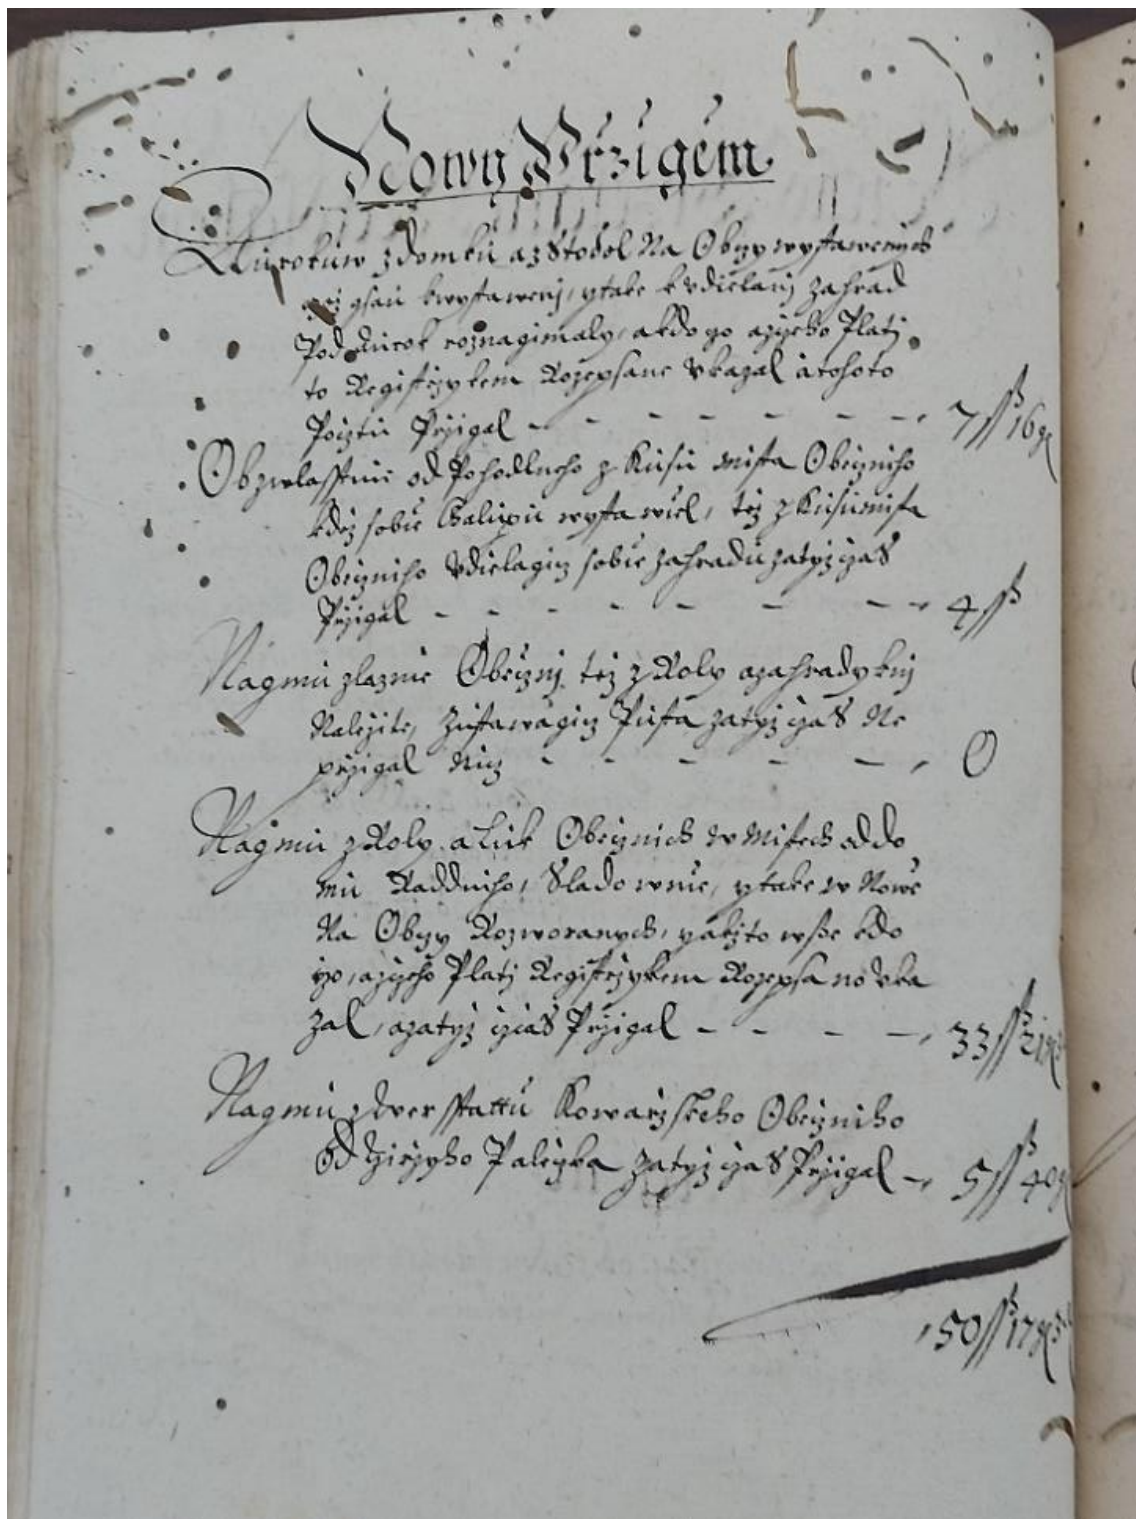 Nowy Przigem
Aurokuw z domku a z Stodol Na Obczy wystawenych
gsau k wystaweny, y take k vdielany zahrad
Pod Aurok roznagimaly, a kdo go a zczeho Platj
to Registrzykem Rozepsane Vkazal a tohoto
Pocztu Przigal - - - - - - 7 ss 16 g
Obzwlasstnie od Pohodluho z kusu mista Obeczniho
kdez sobie Chalupu wystawiel, tez z kusu mista
Obeczniho Vdielagicz sobie zahradu za tyz czas
Przigal - - - - - - - 4 ss
Nagmu z laznie Obeczny tez z Roly a zahrady k nj
Nalezite, Zustawagicz Pusta za tyz czas Ne
przigal nicz - - - - - - 0
Nagmu z Roly a Luk Obecznich w Mistech od do
mu Raddniho, Sladownie, y take w Nowe
Na Obczy Rozworanych, yakzto wsse kdo
czo, a zczeho Platj Registrzykem Rozepsano Vka
zal, a za tyz czas Przigal - - - - 33 ss 21 g
Nagmu z Verstattu Kowarzskeho Obeczniho
Od Girzyho Paleczka za tyz czas Przigal - 5 ss 40 g
50 ss 17 g